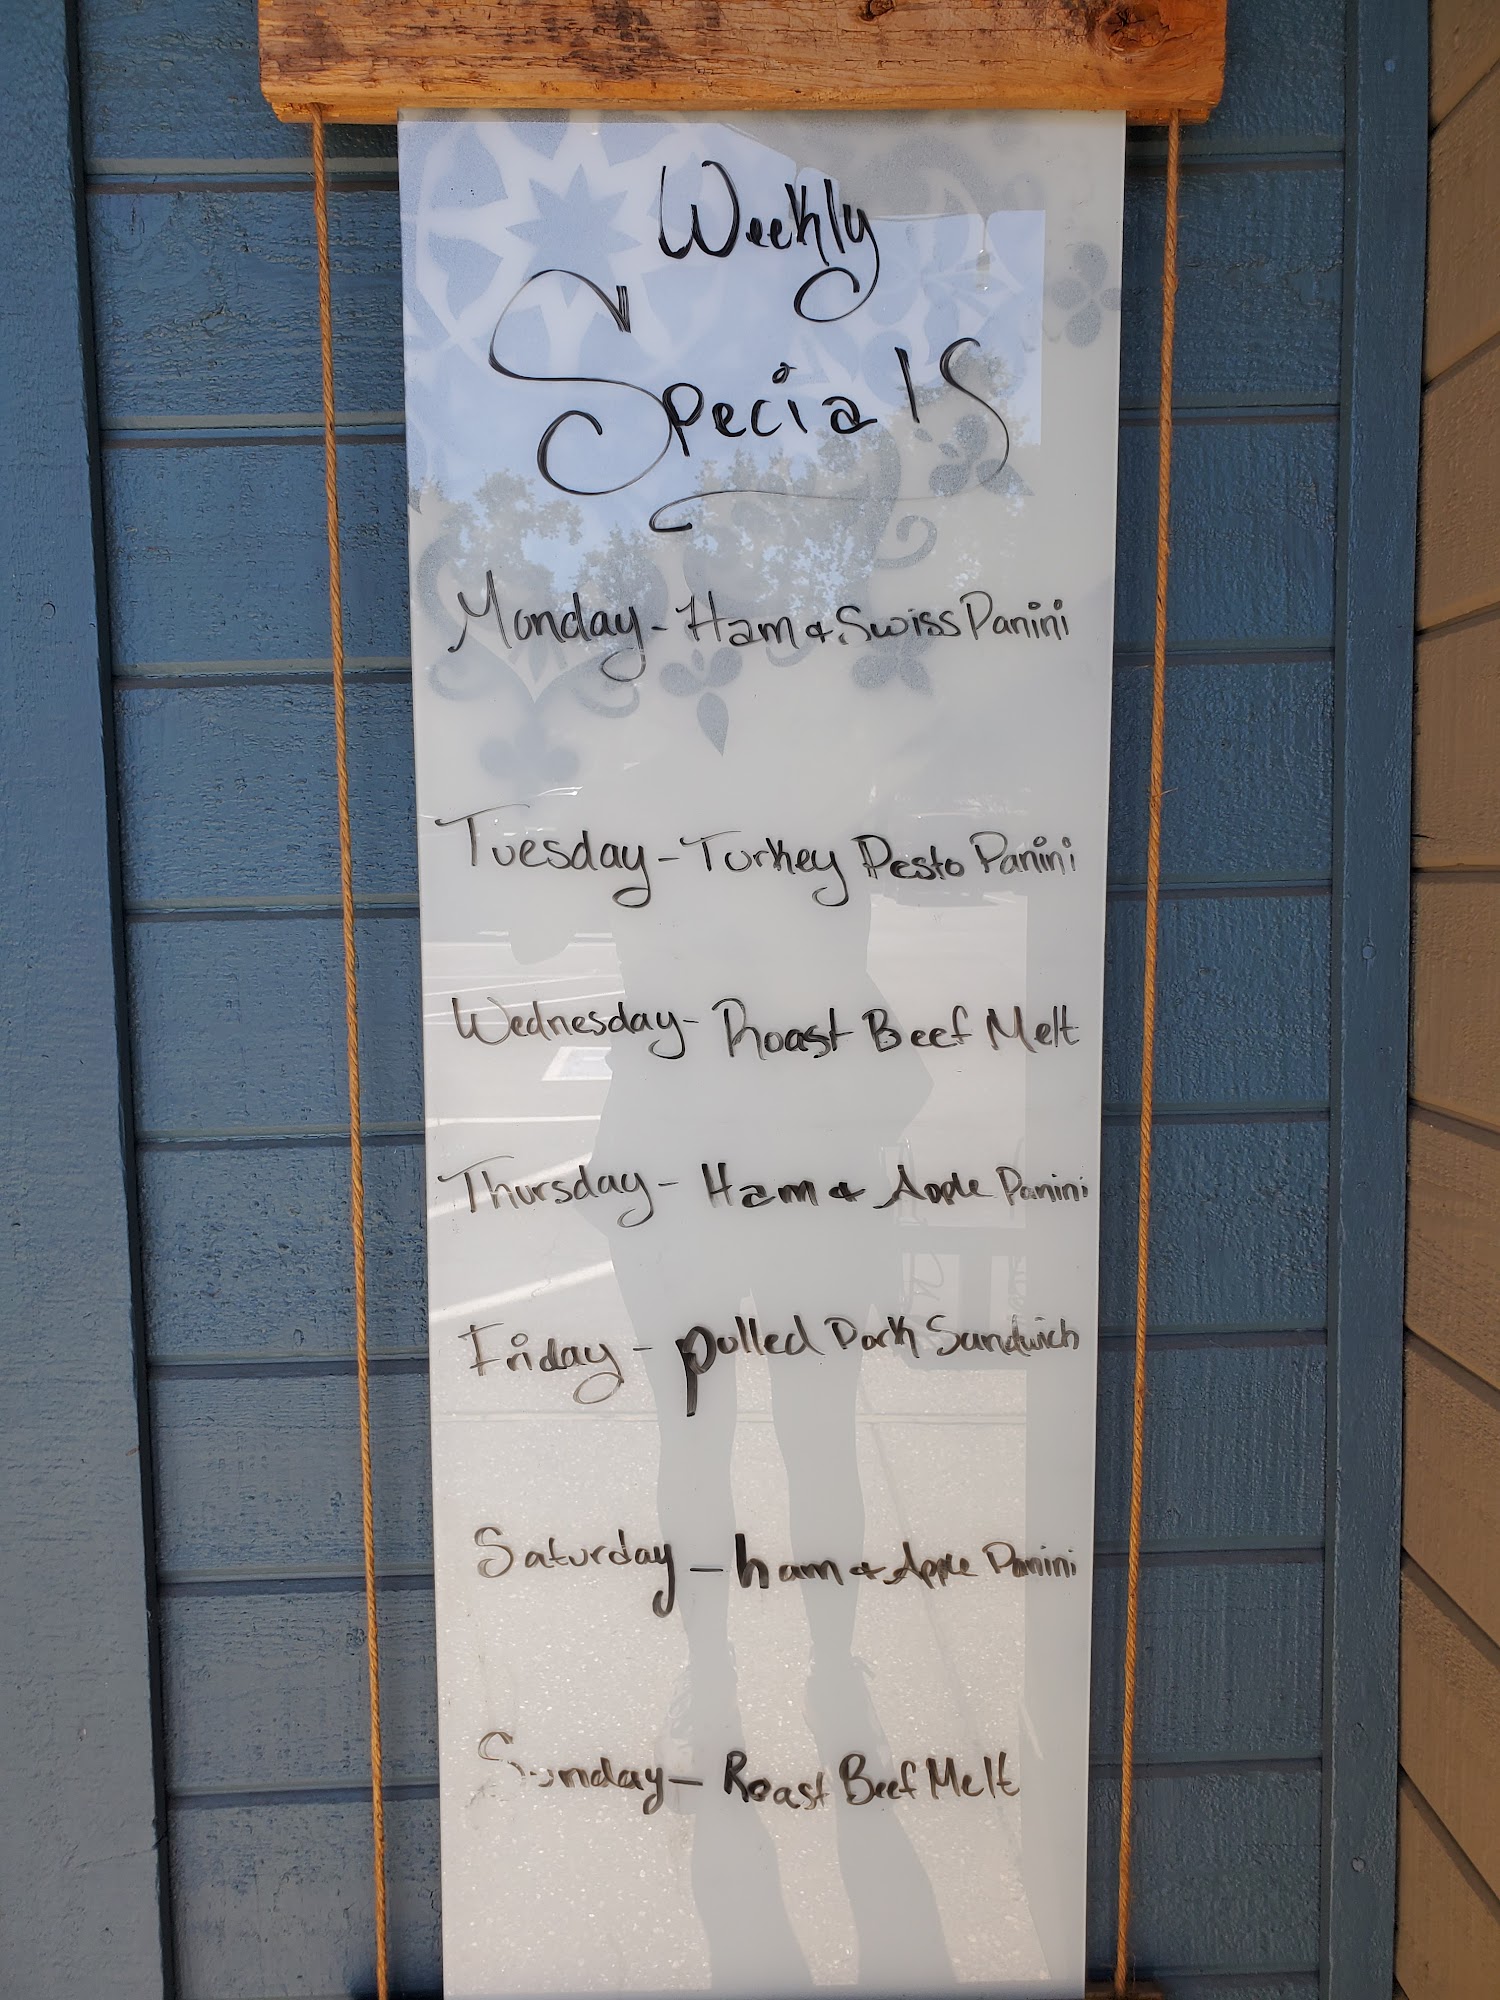 Weekly
Specials
Monday - Ham & Swiss Panini
Tuesday - Turkey Pesto Panini
Wednesday - Roast Beef Melt
Thursday - Ham & Apple Panini
Friday - pulled Pork Sandwich
Saturday - ham & Apple Panini
Sunday - Roast Beef Melt